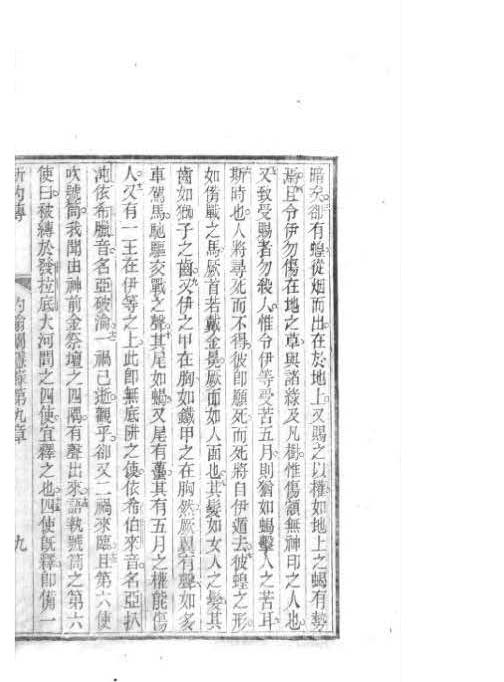 暗矣卻有蝗從烟而出在於地上又賜之以權如地上之蝎有勢
焉且令伊勿傷在地之草與諸綠及凡樹惟傷額無神印之人也
又致受賜者勿殺人惟令伊等受苦五月則猶如蝎擊人之苦耳
斯時也人將尋死而不得彼卽願死而死將自伊遁去彼蝗之形
如備戰之馬厥首若戴金冕厥面如人面也其髮如女人之髮其
齒如獅子之齒又伊之甲在胸如鐵甲之在胸然厥翼有聲如多
車駕馬馳驅交戰之聲其尾如蝎又尾有其有五月之權能傷
人又有一王在伊等之上此卽無底阱之使依希伯來音名亞扒
依希臘音名亞破淪一禍已逝觀乎卻又二禍來臨且第六使
吹號筒我聞由神前金祭壇之四隅有聲出來語執號筒之第六
使曰被縛於發拉底大河間之四使宜釋之也四使旣釋卽備一
新約傳 約翰 錄第九章 九